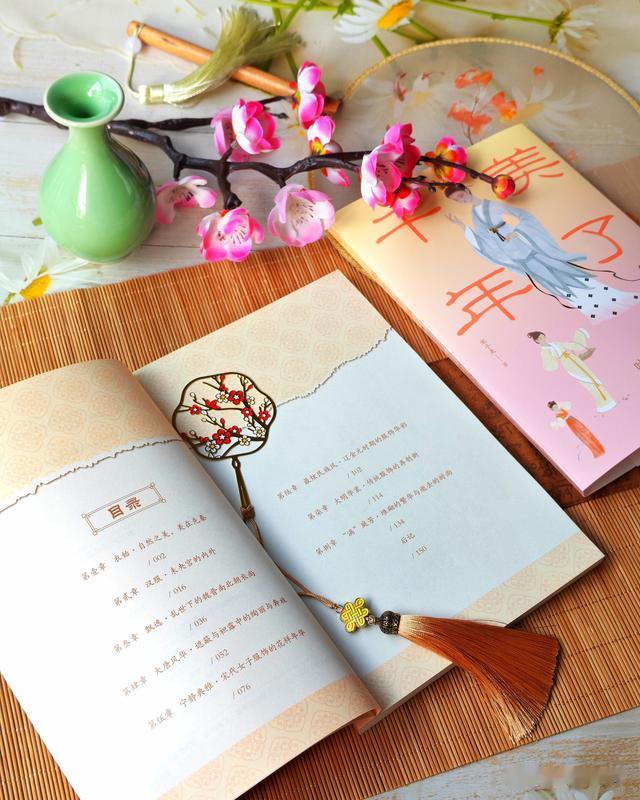 目录
第壹章 衣始·自然之美，美在光暮
/ 002
第贰章 汉服·未央宫的内外
/ 016
第叁章 飘逸·乱世下的魏晋南北朝衣尚
/ 036
第肆章 大唐风华·遮蔽与袒露中的绚丽与奔放
/ 052
第伍章 宁静典雅·宋代女子服饰的花样年华
/ 076
第陆章 民族风·辽金元时期的服饰华彩
/ 102
第柒章 大明华裳·传统服饰的
/ 114
第捌章 “满”庭芳·雅韵的繁华与逝去的时尚
/ 134
后记
/ 150
美了
千年